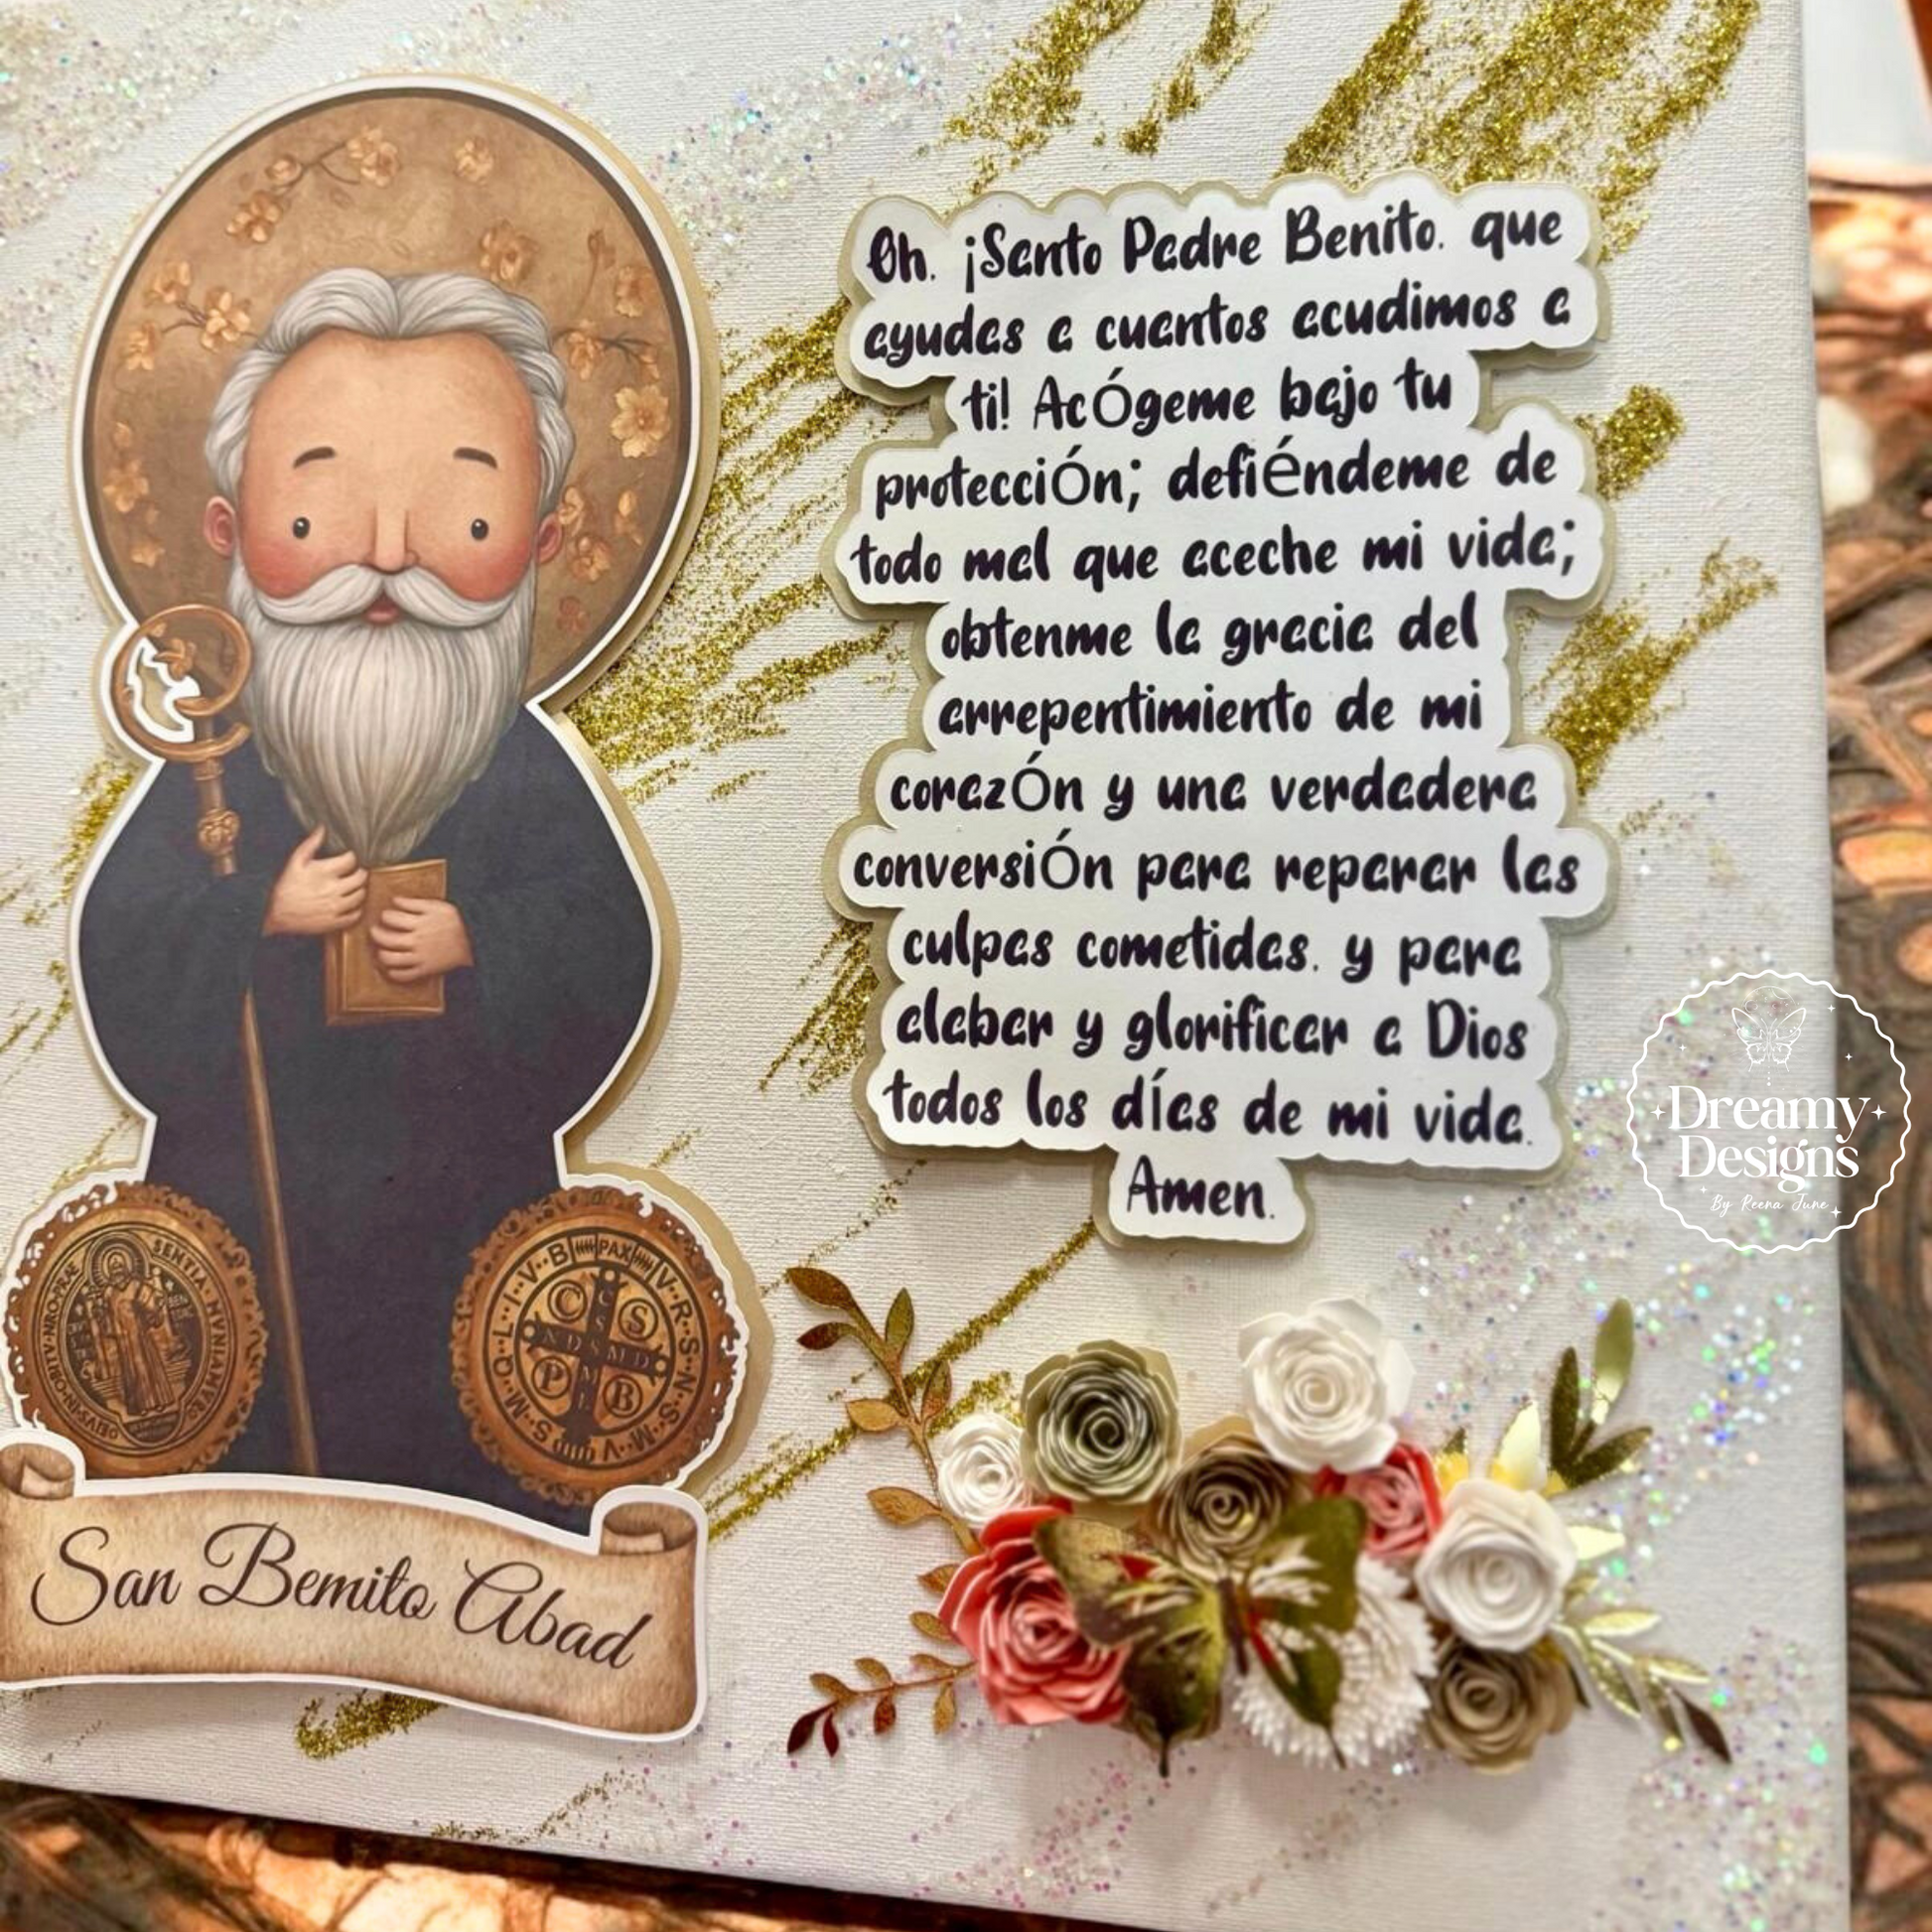 Oh. ¡Santo Padre Benito. que
ayudas a cuantos acudimos a
ti! AcÓgeme bajo tu
protecciÓn; defiéndeme de
todo mal que aceche mi vida;
obtenme la gracia del
arrepentimiento de mi
corazÓn y una verdadera
conversiÓn para reparar las
culpas cometidas. y para
alabar y glorificar a Dios
todos los días de mi vida.
Amen.
San Bemito Abad
PAX
C S
P B
C S S M L
N D S M D
V·R·S·N·S·M·V
S·M·Q·L·I·V·B
Dreamy
Designs
By Reena June